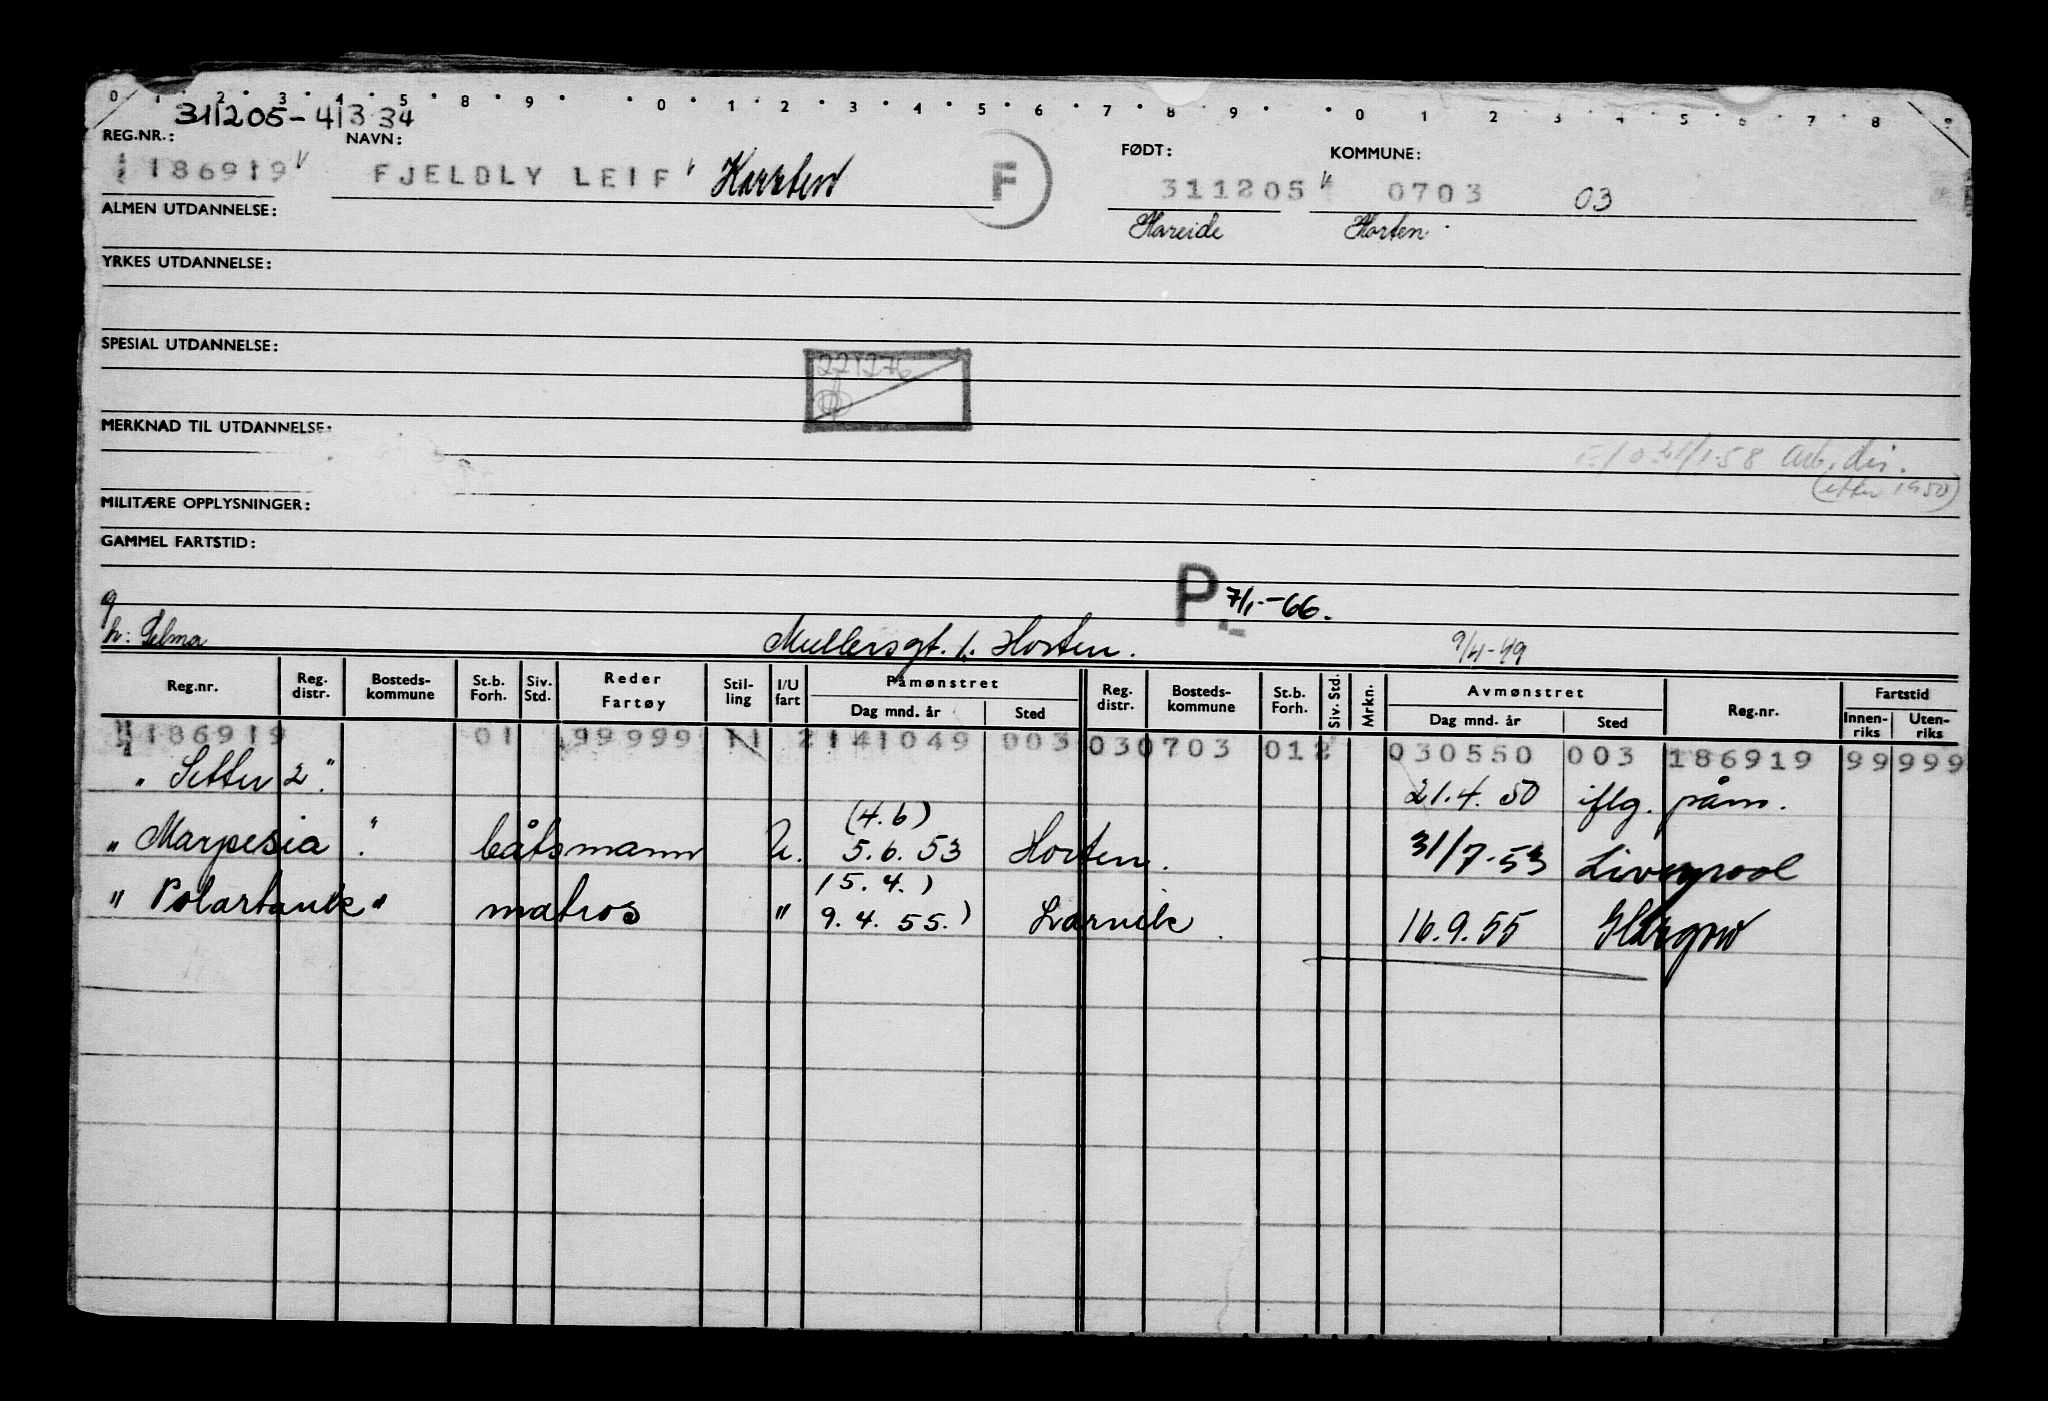 0 1 2 3 4 5 8 9 0 1 2 3 4 5 6 7 8 9 0 1 2 3 4 5 6 7 8 9
311205-41334
REG.NR.: NAVN: FØDT: KOMMUNE:
186919 FJELDLY LEIF Karsten F 311205 0703 03
ALMEN UTDANNELSE: Hareide Horten
YRKES UTDANNELSE:
SPESIAL UTDANNELSE:
221276
MERKNAD TIL UTDANNELSE:
1-58 Arb. dir.
(etter 1950)
MILITÆRE OPPLYSNINGER:
GAMMEL FARTSTID:
P. 7/1-66.
g
h: Selma Mullersgt. 1. Horten. 9/4-49
Reg.nr. Reg. distr. Bosteds-kommune St.b. Forh. Siv. Std. Reder Fartøy Stil-ling I/U fart Påmønstret Dag mnd. år Sted Reg. distr. Bosteds-kommune St.b. Forh. Siv. Std. Mrkn. Avmønstret Dag mnd. år Sted Reg.nr. Fartstid Innen-riks Uten-riks
186919 01 99999 11 2 141049 003 03 0703 012 030550 003 186919 99 999
"Setter 2" 21.4.50 iflg. påm.
(4.6)
"Marpesia" båtsmann U. 5.6.53 Horten. 31/7-53 Liverpool
(5.4.)
"Polartank" matros " 9.4.55.) Larvik 16.9.55 Glasgow